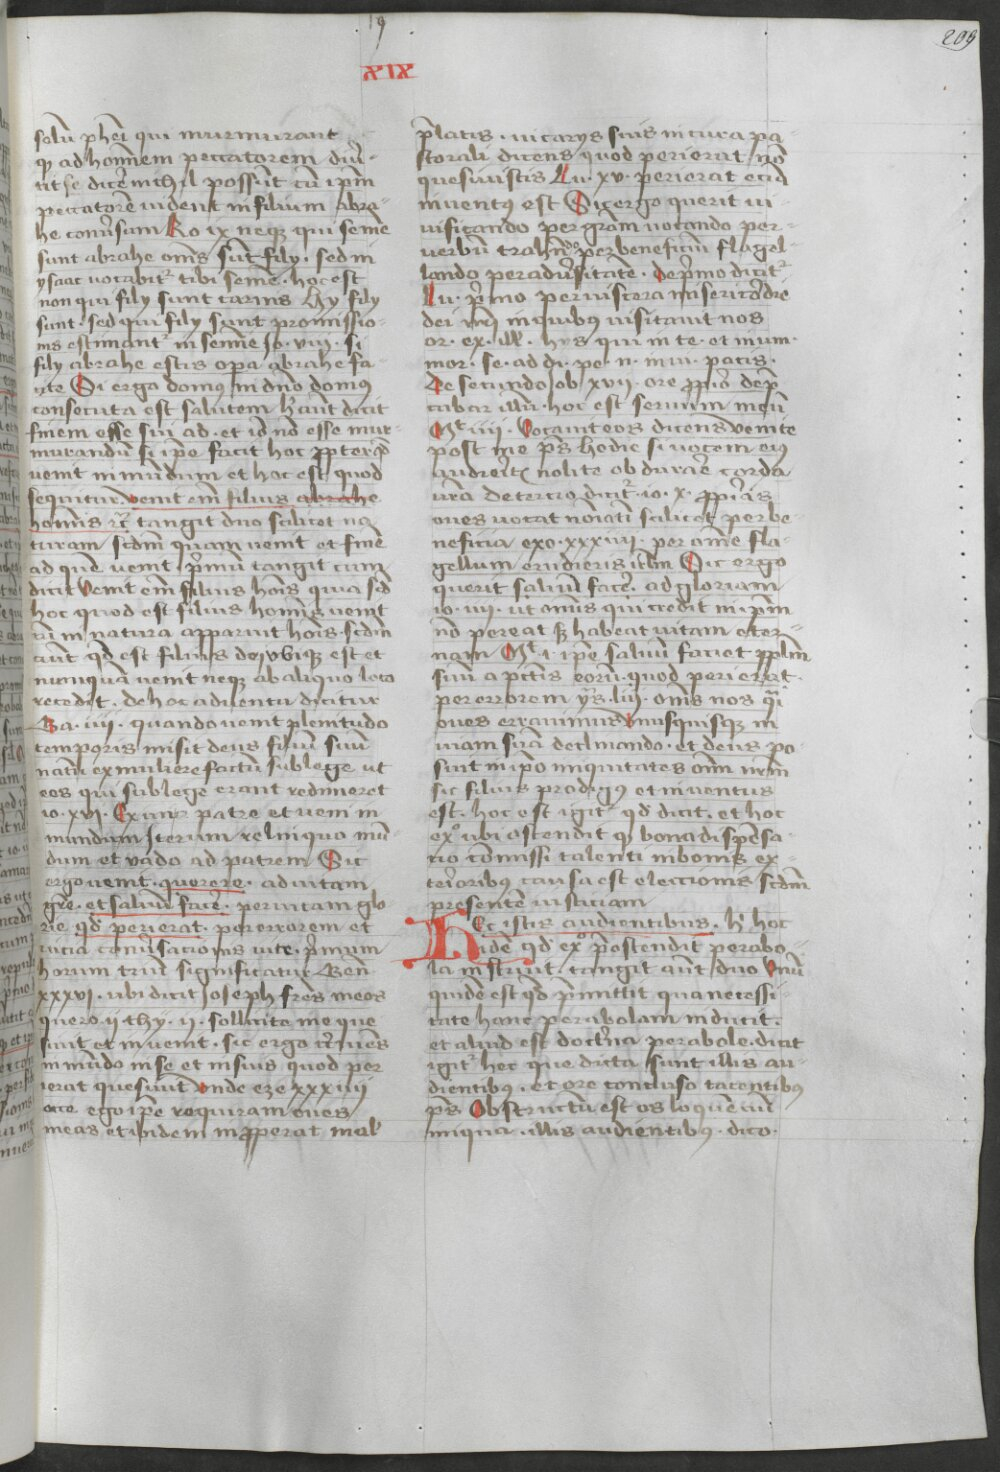 19
209
XIX
solū phēi qui murmurant
qꝫ ad hominem peccatorem diūt
tit se dicētes mihil possūt cū ipm
peccatorē uident in filium abra
he conūsum Ro ix neqꝫ qui semē
sunt abrahe om̄s sūt fily . sed in
ysaac uocabitᷣ tibi semē . hoc est
non qui fily sunt carnis hy fily
sunt . sed qui fily sunt promissio
nis estimantᷣ in semīe Jo . viii . si
fily abrahe estis opa abrahe fa
cite Si ergo domus in dn̄o domus
consecuta est salutem h aūt dicit
finem esse sui ad . et iō nō esse mur
murandū si ipe facit hoc ꝓpter qd̄
uenit in mūdum et hoc est quod
sequitur venit em̄ filius abrahe
hominis rc̄ tangit duo scilicet na
turam scdm quam uenit et finē
ad quē uenit p̄mū tangit cum
dicit Venit em̄ filius hōis quia scd̄
hoc quod est filius hominis uenit
cū in natura apparuit hōis . scdm
aūt qd̄ est filius dei vbiqꝫ est et
numquā uenit neqꝫ ab aliquo loco
recedit . de hoc aduentu dicitur
Ga . iiii . quando uenit plenitudo
temporis misit deus filiū suū
natū ex muliere factū sub lege ut
eos qui sub lege erant redimeret
io . xvi . Exiui a patre et ueni in
mundum Iterum relinquo mū
dum et vado ad patrem Sic
ergo uenit . querere . ad uitam
gr̄e . et saluū facē . per uitam glo
rie qd̄ perierat . per errorem et
uicia conūsacionis uite . p̄mum
horum triū significatur Gen̄
xxxvi . ubi dicit Joseph fr̄es meos
quero . ii thy . ii . sollicite me que
siuit et inuenit . sic ergo ueniēs
in mūdo in se et in suis quod per
ierat quesiuit vnde eze xxxiiii
ecce ego ipe requiram oues
meas et ibidem inꝓperat mal
p̄latis . uicarys suis in cura pa
storali dicens quod perierat nō
quesiuistis Lu . xv . perierat eciā
inuentus est Sic ergo querit ui
uificando per gr̄am uocando per
uerbū trahēdo per beneficiū flagel
lando per aduersitatē . De p̄mo dicitᷣ
Lu . p̄mo per uiscera misericordie
dei nr̄i in quibus uisitauit nos
or . ex . ill . hys qui in te . et in um
mor . se . ad di . pe . n . in ui . pacis .
De secundo Job xvii . ore ꝓprio dep̄
cabar illū . hoc est seruum meū
Mt iiii . Vocauit eos dicens venite
post me p̄s hodie si uocem eius
audieritis nolite obdurare corda
ur̄a de tercio dicitᷣ . io . x . ꝓprias
oues uocat nōiatī scilicet per be
neficia exo . xxxiii . per om̄e fla
gellum erudieris ierl̄m Sic ergo
querit saluū facē . ad gloriam
io . iii . ut omnis qui credit in ipm
nō pereat sꝫ habeat uitam eter
nam Mt i . ipe saluū faciet ꝓplm
suū a pctis eorū . quod perierat .
per errorem ys . liii . om̄s nos q̄i
oues errauimus vnusquisqꝫ in
uiam suā declinando . et deus po
suit in ip̄o iniquitates om̄i nr̄m
sic filius prodigus et inuentus
est . hoc est igit qd̄ dicit . et hoc
exº . ubi ostendit qꝫ bona dispensa
cio com̄issi talenti in bonis ex
terioribus causa est eleccionis scdm
presentē iusticiam
Hec istis audientibus . h̄ hoc
idē qd̄ ex p̄ostendit perabo
la instruit . tangit aūt duo vnū
quidē est qd̄ p̄mittit qua necessi
tate hanc perabolam inducit .
et aliud est doctrīa perabole . dicit
igitᷣ hec que dicta sunt illis au
dientibus . et ore concluso tacentibus
p̄s Obstructū est os loquēciū
iniqua . illis audientibus . dico .